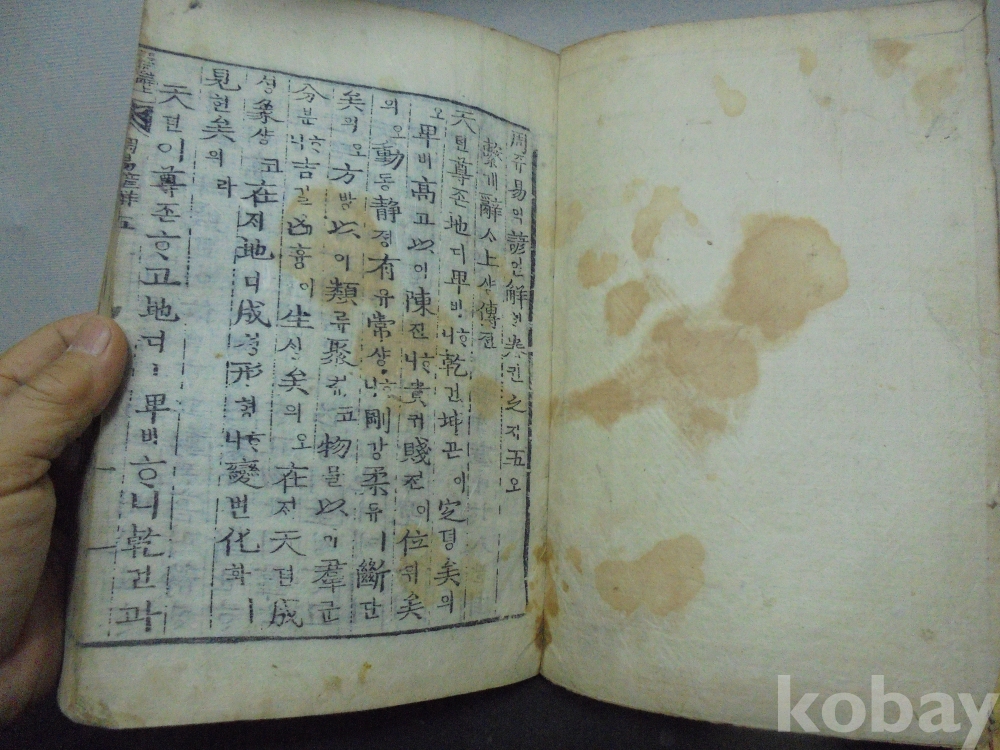 周쥬易역諺언解ᄒᆡ卷권之지五오
繫계辭ᄉᆞ上샹傳젼
天텬尊존地디卑비ᄒᆞ니乾건坤곤이定뎡矣의
오卑비高고以이陳진ᄒᆞ니貴귀賤쳔이位위矣
의오動동靜졍有유常샹ᄒᆞ니剛강柔유ㅣ斷단
矣의오方방以이類류聚ᄎᆔ코物믈以이羣군
分분ᄒᆞ니吉길凶흉이生ᄉᆡᆼ矣의오在ᄌᆡ天텬成
셩象샹코在ᄌᆡ地디成셩形형ᄒᆞ니變변化화ㅣ
見현矣의라
天텬이尊존ᄒᆞ고地디ㅣ卑비ᄒᆞ니乾건과
周易諺解五
kobay